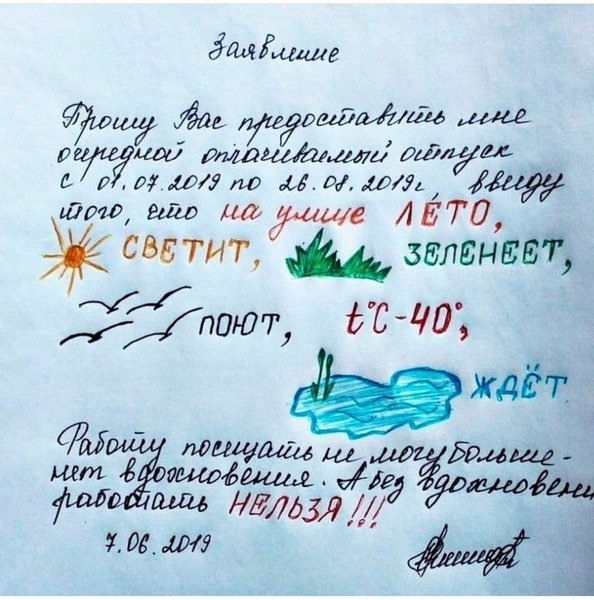 Заявление
Прошу Вас предоставить мне
очередной оплачиваемый отпуск
с 01.07.2019 по 26.08.2019г, ввиду
того, что на улице ЛЕТО,
СВЕТИТ, ЗЕЛЕНЕЕТ,
ПОЮТ, t°C-40°,
ЖДЁТ.
Работу посещать не могу больше-
нет вдохновения. А без вдохновени
работать НЕЛЬЗЯ!!!
7.06.2019